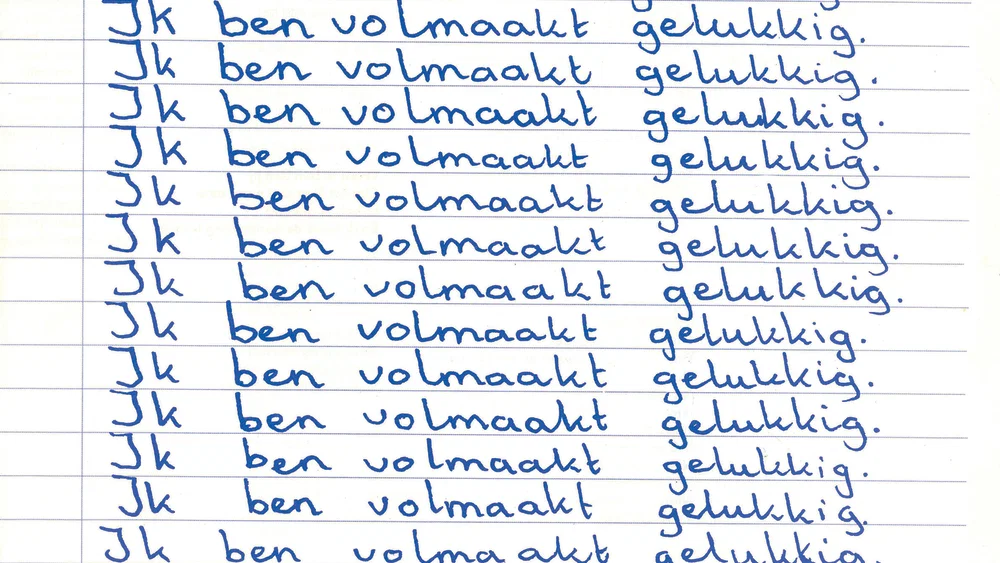 Ik ben volmaakt gelukkig.
Ik ben volmaakt gelukkig.
Ik ben volmaakt gelukkig.
Ik ben volmaakt gelukkig.
Ik ben volmaakt gelukkig.
Ik ben volmaakt gelukkig.
Ik ben volmaakt gelukkig.
Ik ben volmaakt gelukkig.
Ik ben volmaakt gelukkig.
Ik ben volmaakt gelukkig.
Ik ben volmaakt gelukkig.
Ik ben volmaakt gelukkig.
Ik ben volmaakt gelukkig.